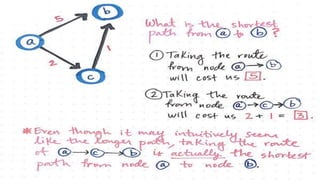 5
b
What is the shortest
path from a to b ?
a
1
2
c
① Taking the route
from node a → b
will cost us 5.
② Taking the route
from node a → c → b
will cost us 2 + 1 = 3.
* Even though it may intuitively seem
like the longer path, taking the route
of a → c → b is actually the shortest
path from node a to node b.